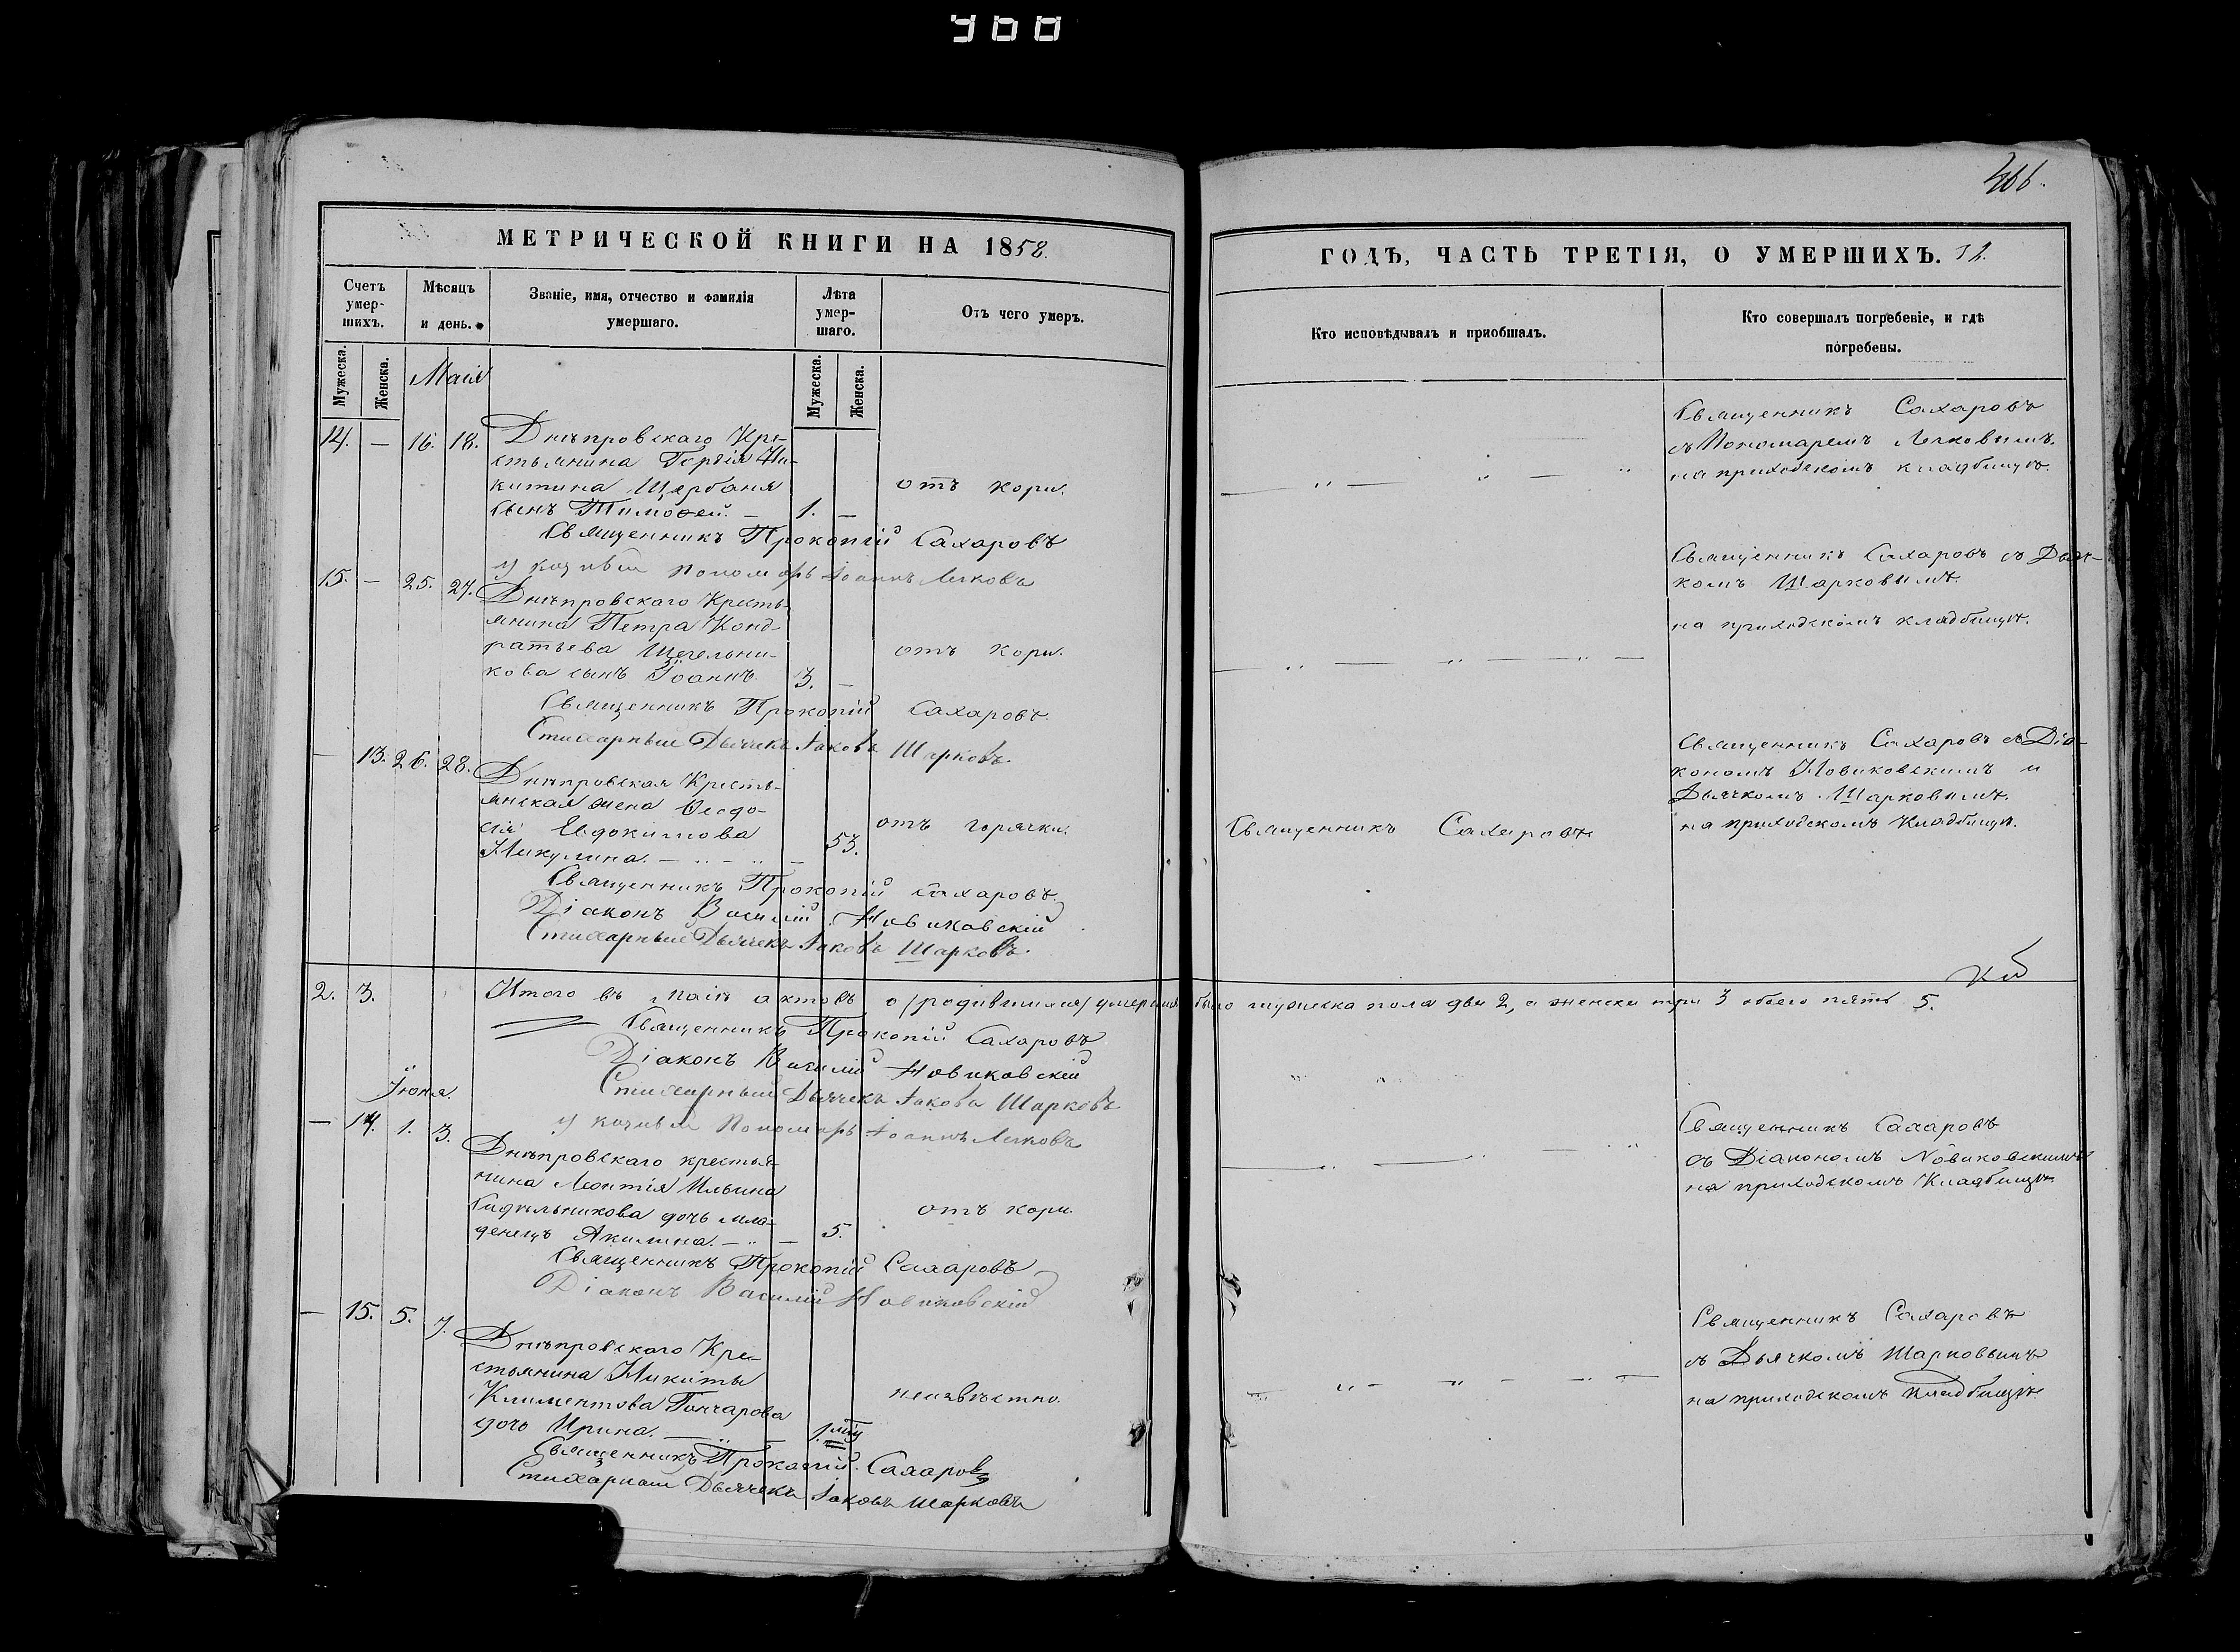 966
МЕТРИЧЕСКОЙ КНИГИ НА 1858.
Счетъ умер-шихъ.
Мѣсяцъ и день.
Званіе, имя, отчество и фамилія умершаго.
Лѣта умер-шаго.
Отъ чего умеръ.
Мужеска.
Женска.
Мужеска.
Женска.
Маія
14. — 16. 18. Днѣпровскаго Кре-
стьянина Гордія Ни-
китина Щербаня
сынъ Тимоѳей. — 1. — отъ кори.
Священникъ Прокопій Сахаровъ
Пономарь Іоаннъ
15. — 25. 27. Днѣпровскаго Кресть-
янина Петра Конд-
ратьева Щегельни-
кова сынъ Іоаннъ. 3. — отъ кори.
Священникъ Прокопій Сахаровъ.
Стихарный Дьячекъ Іаковъ Шарковъ.
— 13. 26. 28. Днѣпровская Кресть-
янская жена Ѳеодо-
сія Евдокимова
Микулина. — „ — „ — 53. отъ горячки.
Священникъ Прокопій Сахаровъ.
Діаконъ Василій Новиковскій
Стихарный Дьячекъ Іаковъ Шарковъ.
2. 3. Итого въ Маіѣ актовъ о (родившихся) умершихъ
Священникъ Прокопій Сахаровъ
Діаконъ Василій Новиковскій
Стихарный Дьячекъ Іаковъ Шарковъ
Пономарь Іоаннъ
Іюня.
— 14. 1. 3. Днѣпровскаго крестья-
нина Леонтія Ильина
дочь мла-
денецъ Акилина. — „ — 5. отъ кори.
Священникъ Прокопій Сахаровъ
Діаконъ Василій Новиковскій
— 15. 5. 7. Днѣпровскаго Кре-
стьянина Никиты
Климентова Гончарова
дочь Ирина. — „ — неизвѣстно.
Священникъ Прокопій Сахаровъ
Стихарный Дьячекъ Іаковъ Шарковъ
466.
ГОДЪ, ЧАСТЬ ТРЕТІЯ, О УМЕРШИХЪ. 52.
Кто исповѣдывалъ и пріобщалъ.
Кто совершалъ погребеніе, и гдѣ
погребены.
Священникъ Сахаровъ
съ Пономаремъ
на приходскомъ кладбищѣ.
Священникъ Сахаровъ съ Дьяч-
комъ Шарковымъ.
на приходскомъ кладбищѣ.
Священникъ Сахаровъ
Священникъ Сахаровъ съ Діа-
кономъ Новиковскимъ и
Дьячкомъ Шарковымъ.
на приходскомъ Кладбищѣ.
было мужеска пола два 2, а женска три 3 обоего пять 5.
Священникъ Сахаровъ
съ Діакономъ Новиковскимъ
на приходскомъ Кладбищѣ.
Священникъ Сахаровъ
съ Дьячкомъ Шарковымъ
на приходскомъ кладбищѣ.